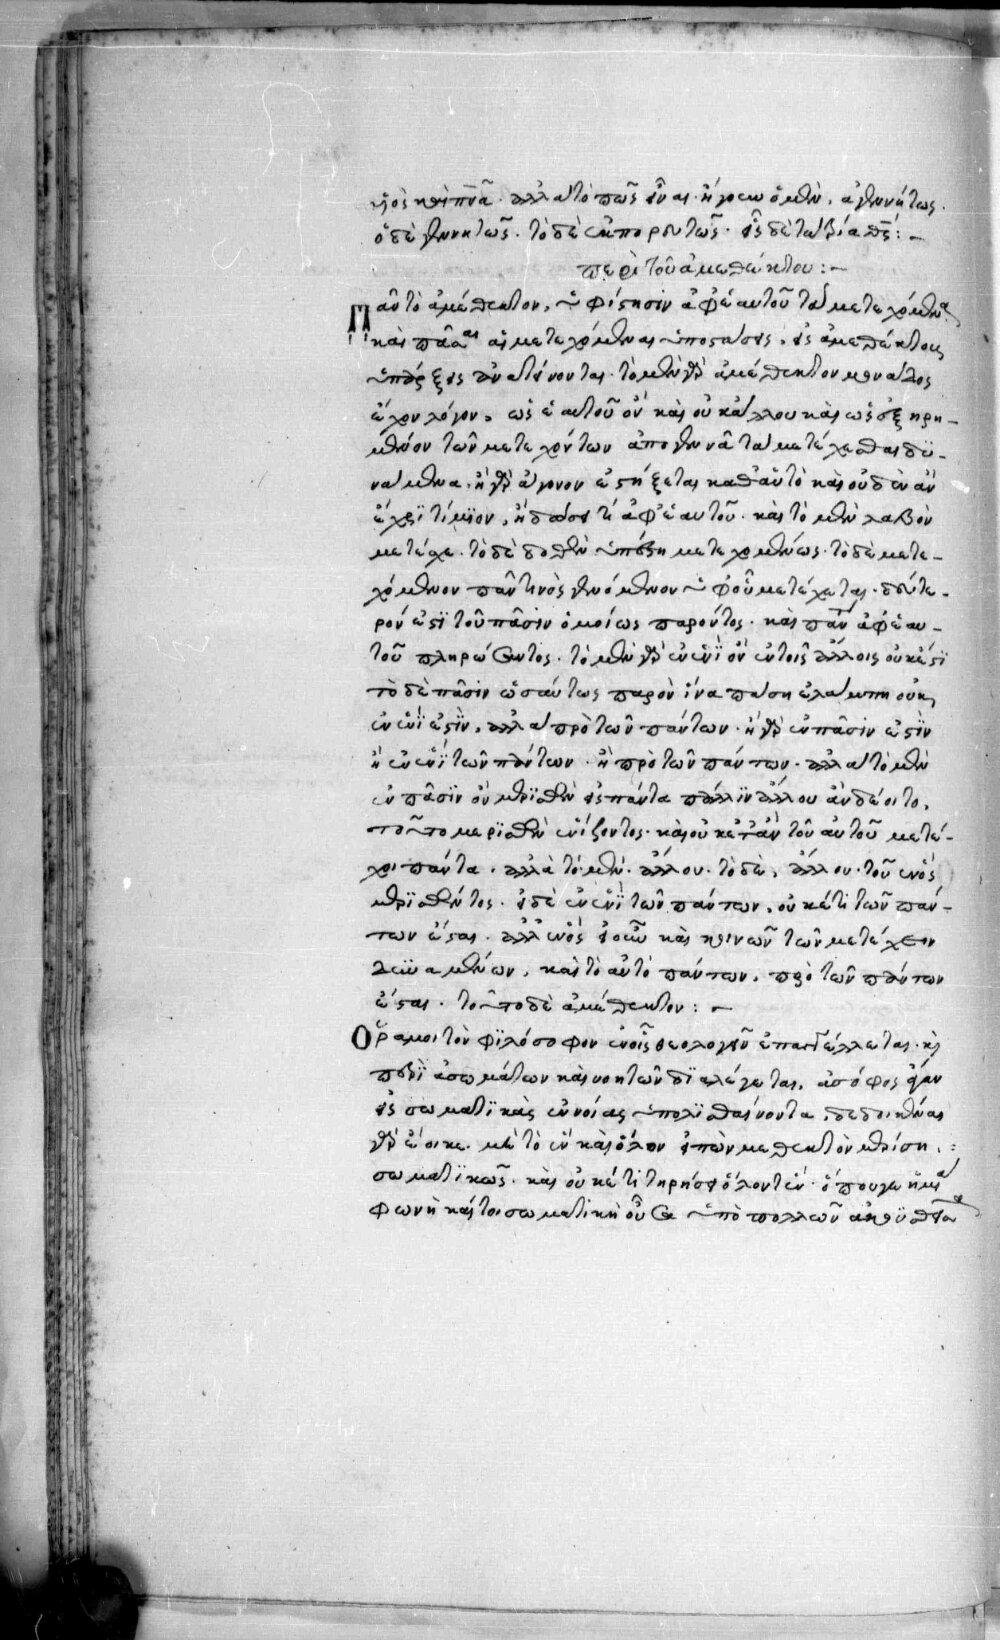 υἱὸς καὶ πνα. ἀλλὰ τὸ πῶς εἶναι. ἤγουν ὁ μὲν, ἀγεννήτως.
ὁ δὲ γεννητῶς. τὸ δὲ ἐκπορευτῶς. εἷς δὲ τὰ τρία θς: ~
περὶ τοῦ ἀμεθέκτου: ~
Πᾶν τὸ ἀμέθεκτον, ὑφίστησιν ἀφ' ἑαυτοῦ τὰ μετεχόμενα
καὶ πᾶσαι αἱ μετεχόμεναι ὑποστάσεις, εἰς ἀμεθέκτους
ὑπάρξεις ἀνατείνονται. τὸ μὲν γὰρ ἀμέθεκτον μονάδος
ἔχον λόγον, ὡς ἑαυτοῦ ὂν καὶ οὐκ ἄλλου καὶ ὡς ἐξῃρη-
μένον τῶν μετεχόντων ἀπογεννᾶ τὰ μετέχεσθαι δυ-
νάμενα. ἢ γὰρ ἄγονον ἑστήξεται καθ' αὑτὸ καὶ οὐδὲν ἂν
ἔχοι τίμιον, ἢ δώσει τι ἀφ' ἑαυτοῦ. καὶ τὸ μὲν λαβὸν
μετέσχε. τὸ δὲ δοθὲν ὑπέστη μετεχομένως. τὸ δὲ μετε-
χόμενον πᾶν τινὸς γενόμενον ὑφ' οὗ μετέχεται. δεύτε-
ρόν ἐστι τοῦ πᾶσιν ὁμοίως παρόντος. καὶ πάντα ἀφ' ἑαυ-
τοῦ πληρώσαντος. τὸ μὲν γὰρ ἐν ἑνὶ ὂν ἐν τοῖς ἄλλοις οὐκ ἔστι
τὸ δὲ πᾶσιν ὡσαύτως παρὸν ἵνα πᾶσιν ἐλλάμπῃ οὐκ
ἐν ἑνί ἐστιν, ἀλλὰ πρὸ τῶν πάντων. ἢ γὰρ ἐν πᾶσίν ἐστιν
ἢ ἐν ἑνὶ τῶν πάντων. ἢ πρὸ τῶν πάντων. ἀλλὰ τὸ μὲν
ἐν πᾶσιν ὂν μερισθὲν εἰς πάντα πάλιν ἄλλου ἂν δέοιτο,
τοῦ τὸ μερισθὲν ἑνίζοντος. καὶ οὐκέτ' ἂν τοῦ αὐτοῦ μετέ-
χοι πάντα. ἀλλὰ τὸ μὲν. ἄλλου. τὸ δὲ, ἄλλου. τοῦ ἑνὸς
μερισθέντος. εἰ δὲ ἐν ἑνὶ τῶν πάντων, οὐκέτι τῶν πάν-
των ἔσται. ἀλλ' ἑνός εἰ οὖν καὶ κοινῶν τῶν μετέχειν
δυναμένων, καὶ τὸ αὐτὸ πάντων, πρὸ τῶν πάντων
ἔσται. τοῦτο δὲ ἀμέθεκτον: ~
Ὅρα μοι τὸν φιλόσοφον ἐν οἷς θεολογεῖν ἐπαγγέλλεται. καὶ
περὶ ἀσωμάτων καὶ νοητῶν διαλέγεται, ἀσόφως πάνυ
εἰς σωματικὰς ἐννοίας ὑπολισθαίνοντα, δεδοικέναι
γὰρ ἔοικε μὴ τὸ ἓν καὶ ὅλον εἰπὼν μεθεκτὸν μερίσῃ.:
σωματικῶς. καὶ οὐκέτι τηρήσει ὅλον τὸ ἕν. ὅπου γε ἡ μία
φωνὴ καίτοι σωματικὴ οὖσα ὑπὸ πολλῶν ἀκουσθεῖσα